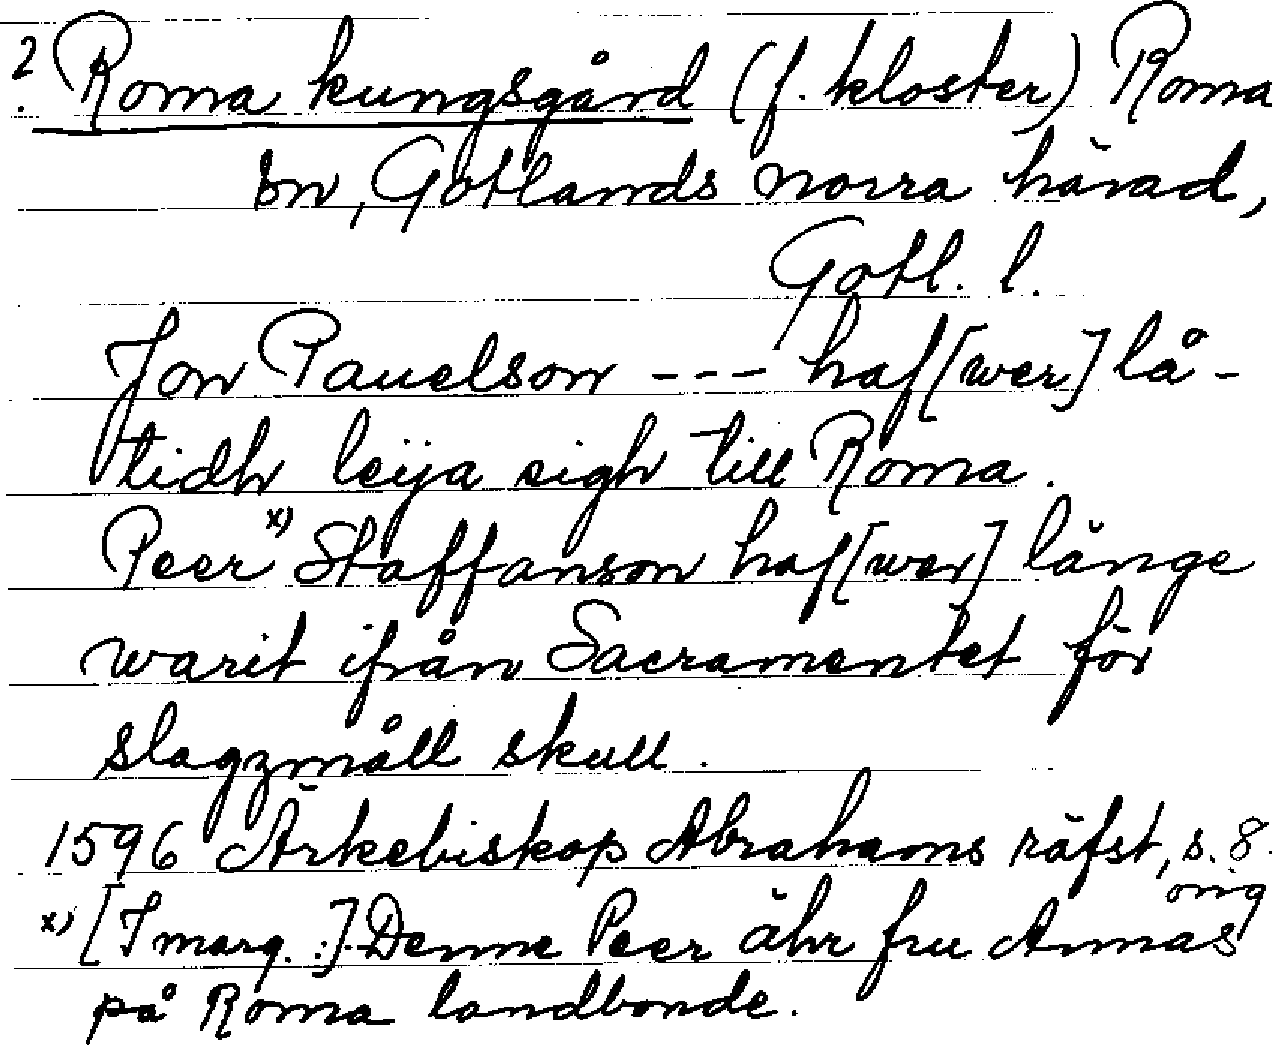 ? Roma kungsgård (f. kloster) Roma
sn, Gotlands norra härad,
Gotl. l.
Jon Pauelson --- haf[wer] lå-
tidh leija sigh till Roma.
Peer x) Staffanson haf[wer] länge
warit ifrån Sacramentet för
slagzmåll skull.
1596 Ärkebiskop Abrahams räfst, s. 8.
orig
x) [I marg.:] Denne Peer ähr fru Annas
på Roma landbonde.